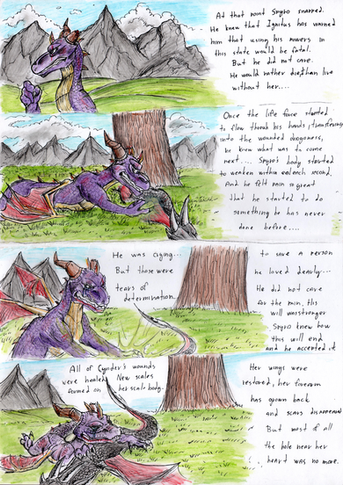 At that point Spyro snarred.
He knew that Ignitus has warned
him that using his powers in
this state would be fatal.
But he did not care.
He would rather die than live
without her....
Once the life force started
to flow through his hands, transfering
onto the wounded dragoness,
he knew what was to come
next.... Spyro's body started
to weaken with each second.
And he felt pain so great
that he started to do
something he has never
done before....
He was crying...
But those were
tears of
determination.
to save a person
he loved dearly...
He did not care
for the pain, his
will was stronger
Spyro knew how
this will end
and he accepted it
All of Cynder's wounds
were healed. New scales
formed on her scale body.
Her wings were
restored, her forearm
has grown back
and scars disappeared
But most of all
the hole near her
heart was no more.